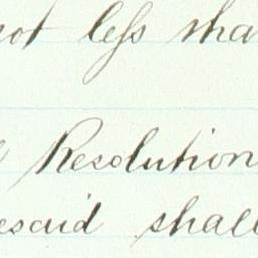 not less sha
Resolution
esaid shall